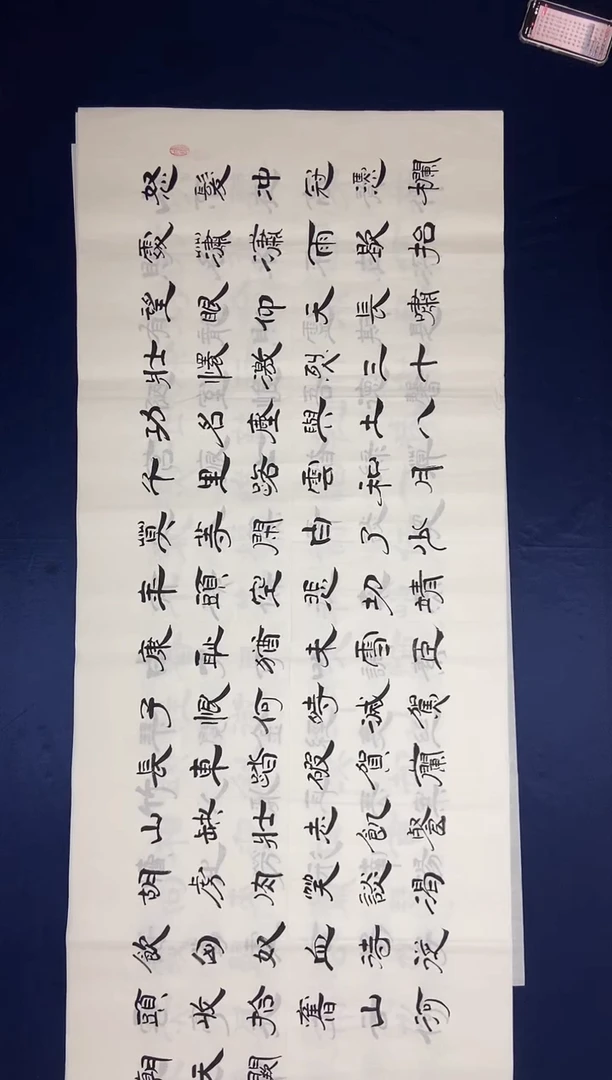 怒髮冲冠憑欄
處瀟瀟雨歇抬
望眼仰天長嘯
壯懷激烈三十
功名塵與土八
千里路雲和月
莫等閒白了少
年頭空悲切靖
康恥猶未雪臣
子恨何時滅駕
長車踏破賀蘭
山缺壯志飢餐
胡虜肉笑談渴
飲匈奴血待從
頭收拾舊山河
朝天闕